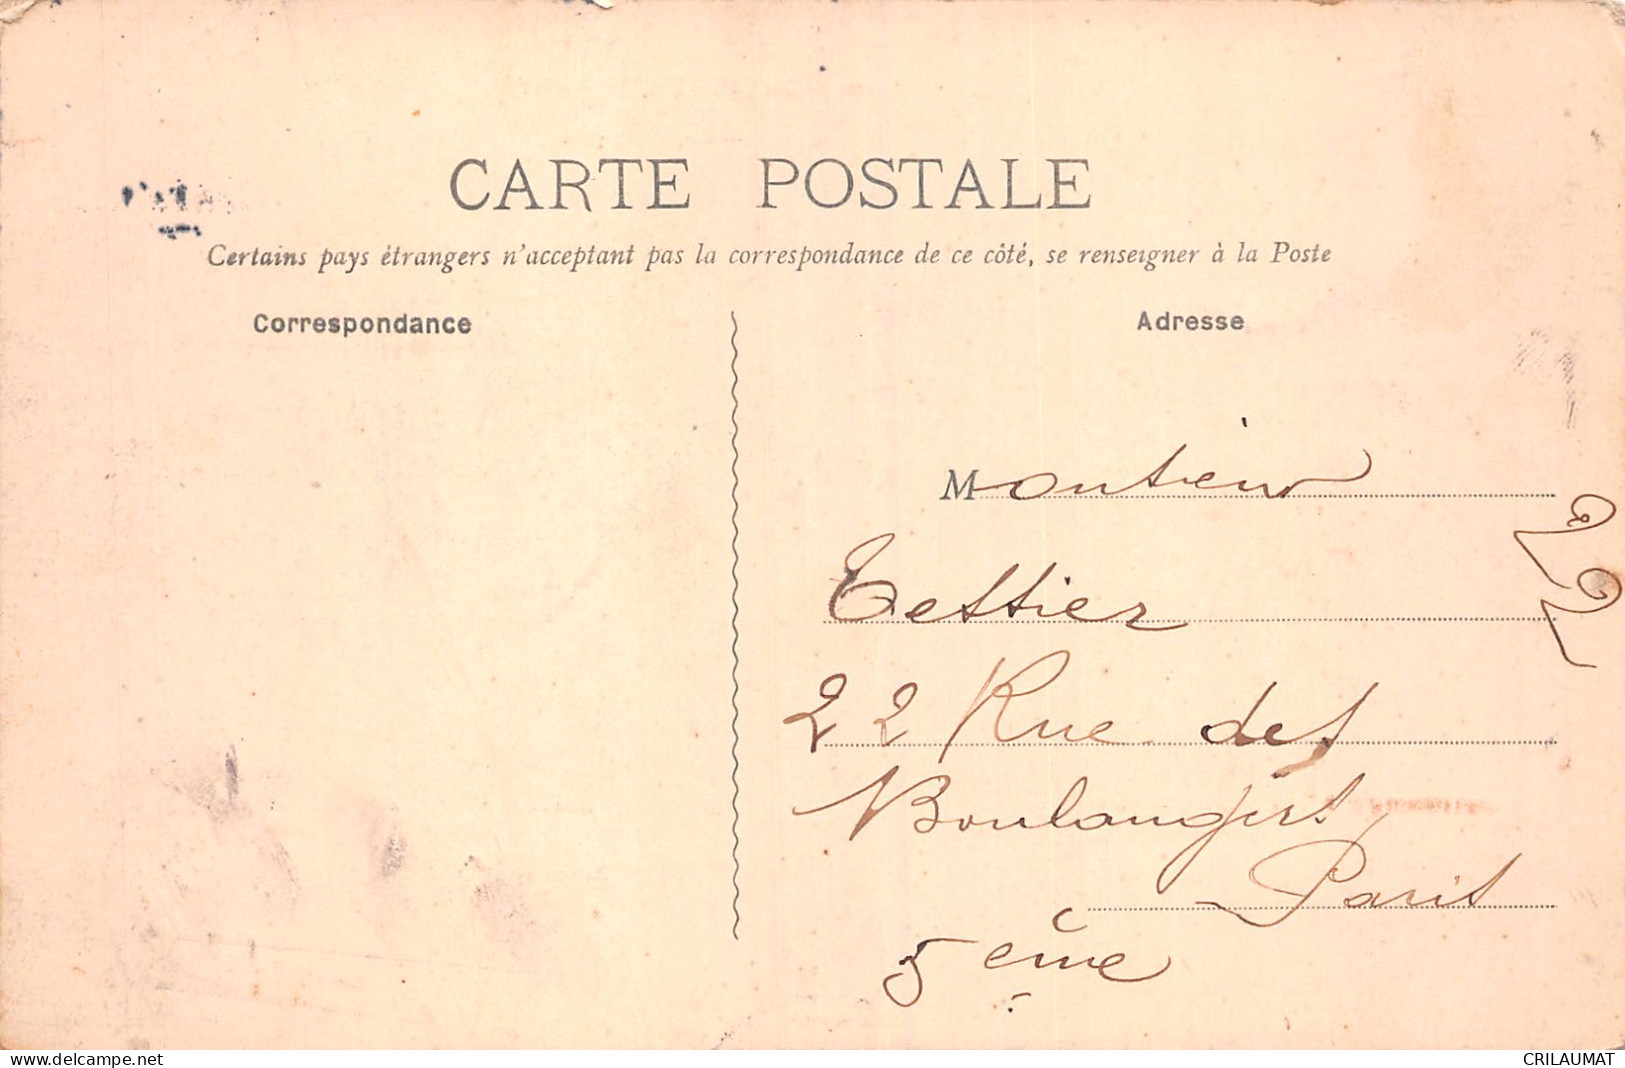 CARTE POSTALE
Certains pays étrangers n'acceptant pas la correspondance de ce côté, se renseigner à la Poste
Correspondance
Adresse
Monsieur
Tessier
22 Rue des
Boulangers
Paris
5 eme
22
delcampe.net
CRILAUMAT